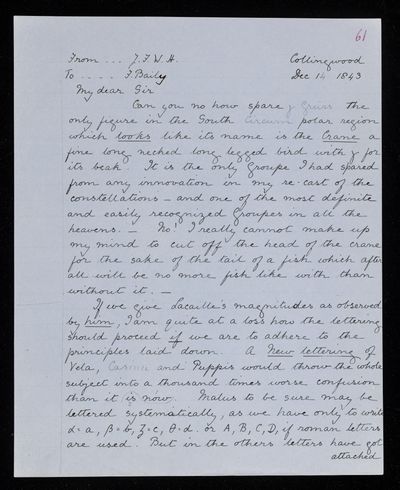 61
From ... J. F. W. H. Collingwood
To ..... F. Baily Dec 14 1843
My dear Sir
Can you no how spare γ Gruis the
only figure in the South Circum polar region
which looks like its name is the Crane a
fine long necked long legged bird with γ for
its beak. It is the only Groupe I had spared
from any innovation in my re-cast of the
constellations – and one of the most definite
and easily recognized Groupes in all the
heavens. – No! I really cannot make up
my mind to cut off the head of the crane
for the sake of the tail of a fish which after
all will be no more fish like with than
without it. –
If we give Lacaille's magnitudes as observed
by him, I am quite at a loss how the lettering
should proceed if we are to adhere to the
principles laid down. A New lettering of
Vela, Carina and Puppis would throw the whole
subject into a thousand times worse confusion
than it is now. Malus to be sure may be
lettered systematically, as we have only to write
α=a, β=b, ζ=c, θ=d. or A, B, C, D, if roman letters
are used. But in the others letters have got
attached